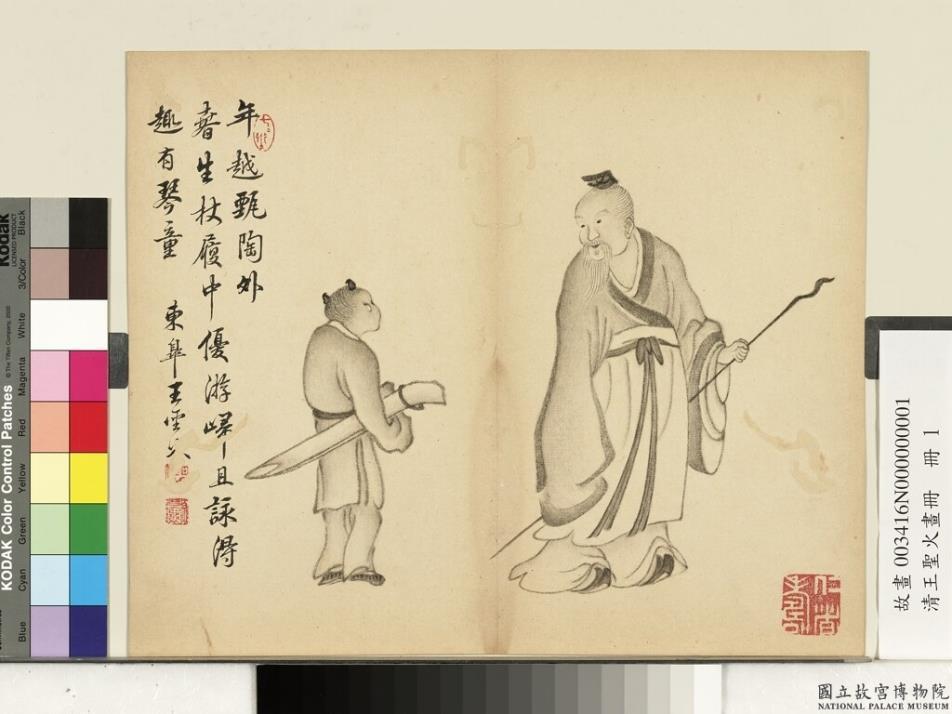 年越甄陶外
春生杖履中優游歸且詠得
趣有琴童
東皋王聖火
故畫 003416N000000001
清王聖火畫冊 冊 1
國立故宮博物院
NATIONAL PALACE MUSEUM
KODAK Color Control Patches
© The Tiffen Company, 2000
Kodak
LICENSED PRODUCT
Blue
Cyan
Green
Yellow
Red
Magenta
White
3/Color
Black